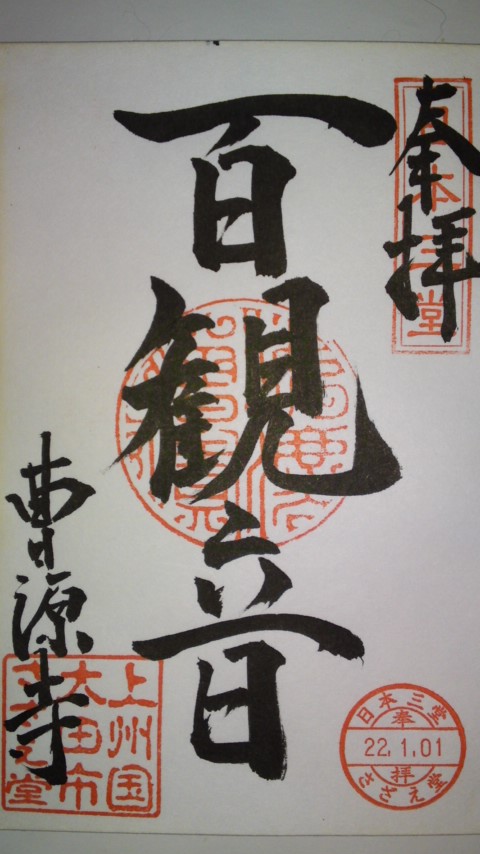 奉拝
日本三堂
百観音
曹源寺
上州国
太田市
さざえ堂
日本三堂
奉
22.1.01
拝
さざえ堂